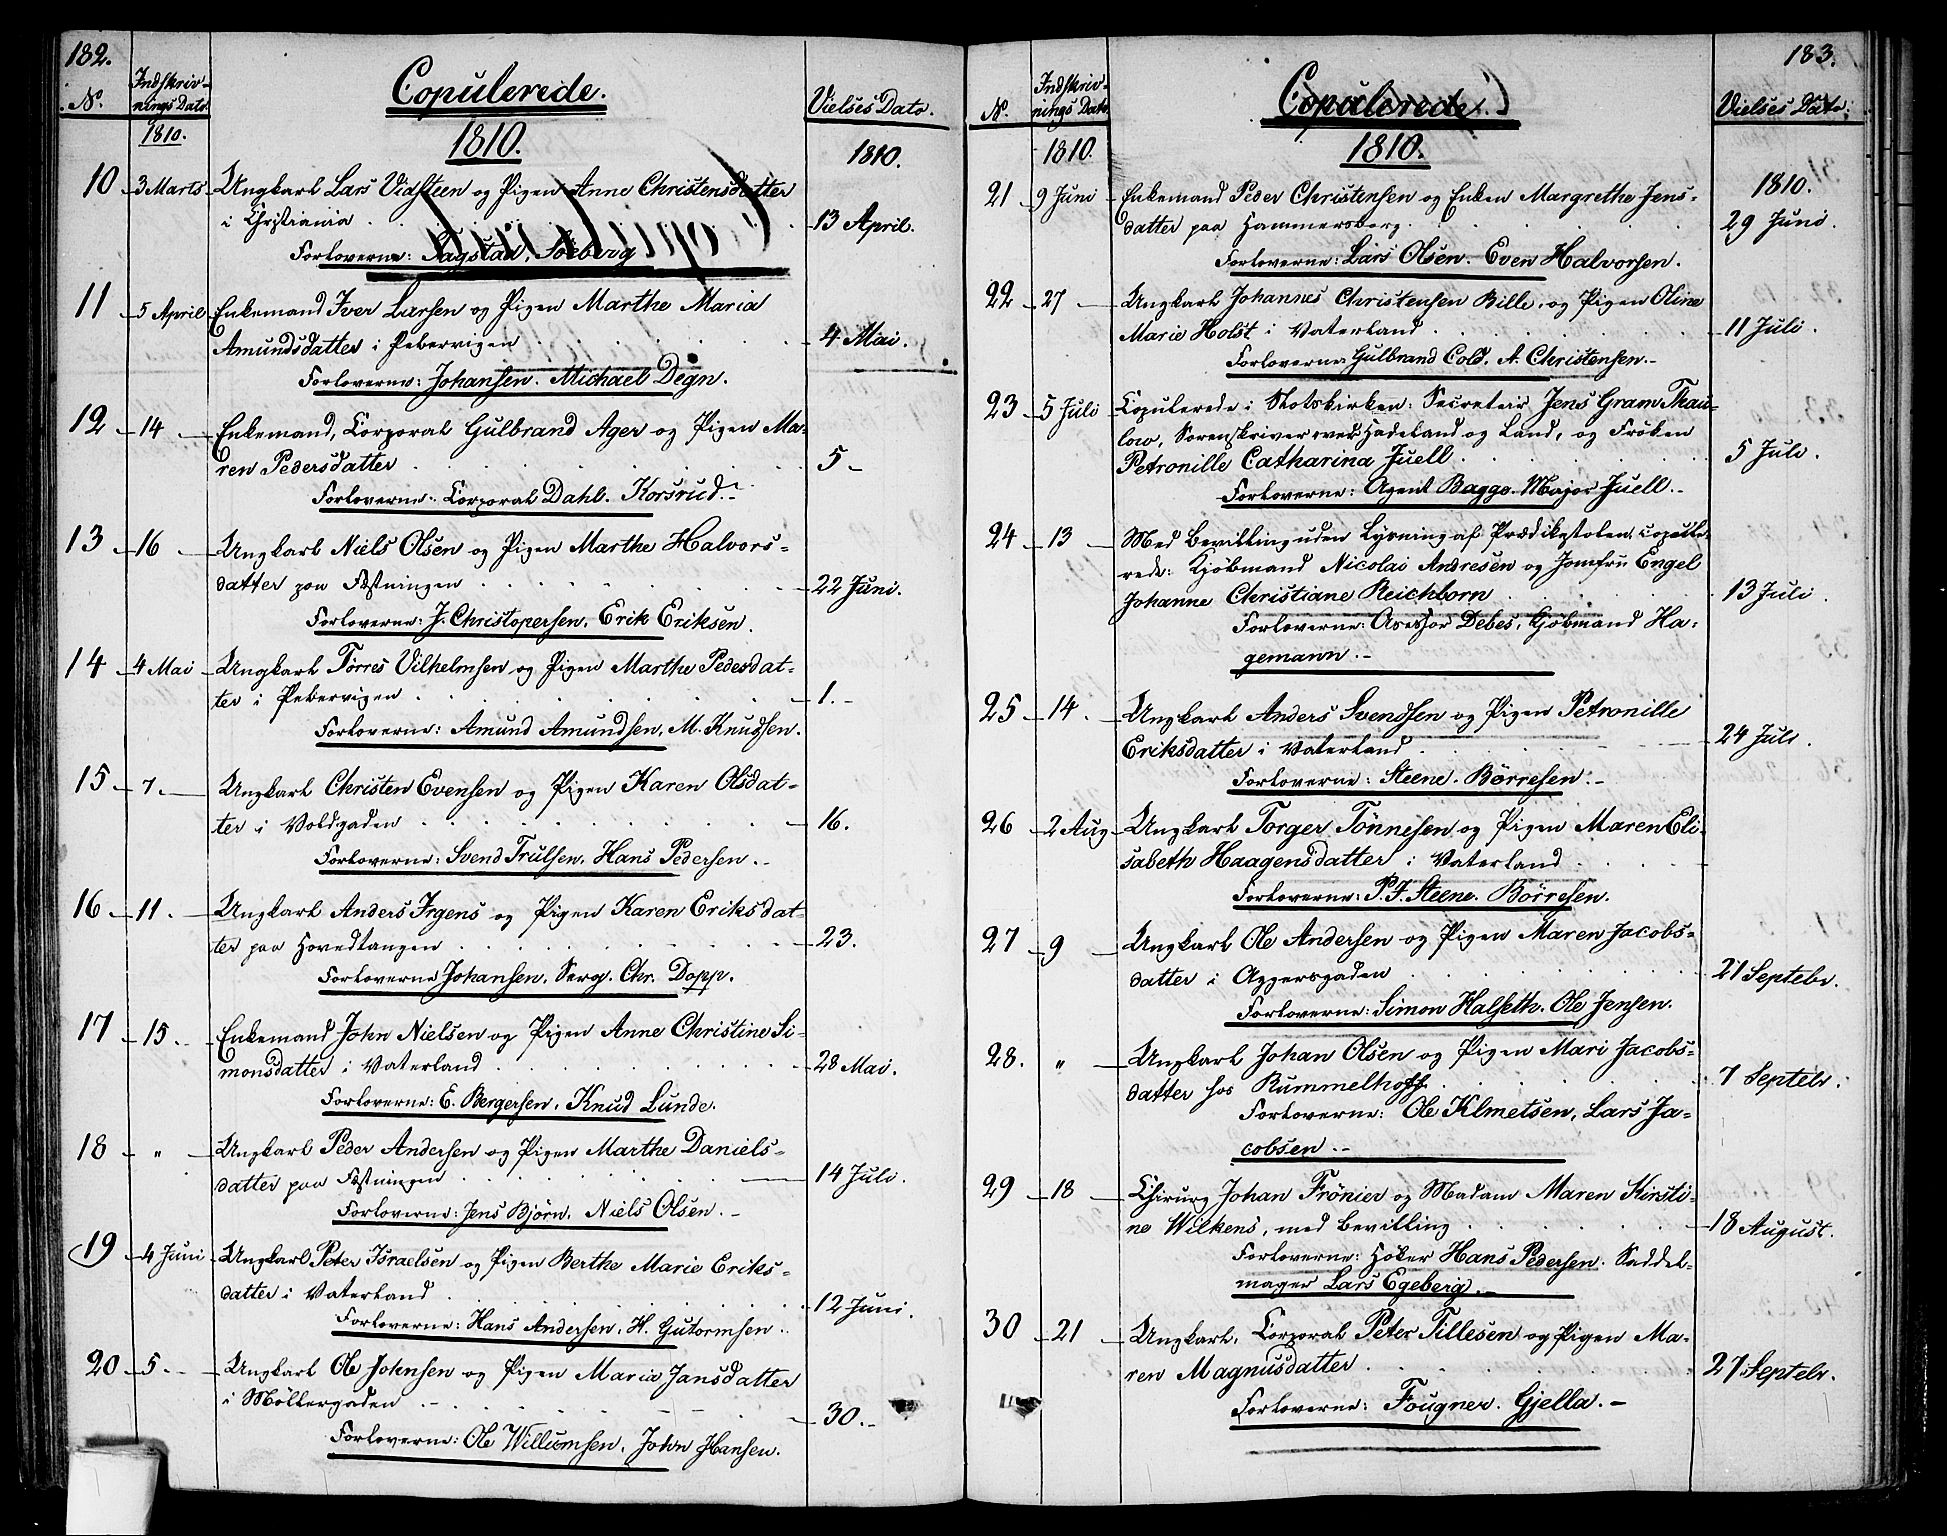 182.
No. Indskriv-
nings Dato. Copulerede. Vielses Dato.
1810. 1810. 1810.
10 3 Marts Ungkarl Lars Vidsteen og Pigen Anne Christensdatter
i Christiania . 13 April.
Forloverne: Sagstad, Söeberg
11 5 April Enkemand Iver Larsen og Pigen Marthe Maria
Amundsdatter i Pebervigen 4 Mai.
Forloverne: Johansen. Michael Degn.
12 14 Enkemand, Corporal Gulbrand Ager og Pigen Ma-
ren Pedersdatter 5
Forloverne: Corporal Dahl. Korsrud.
13 16 Ungkarl Niels Olsen og Pigen Marthe Halvors-
datter paa Fæstningen 22 Juni.
Forloverne: J. Christopersen, Erik Eriksen.
14 4 Mai Ungkarl Tørres Vilhelmsen og Pigen Marthe Pedesdat-
ter i Pebervigen 1.
Forloverne: Amund Amundsen, M. Knudsen.
15 7. Ungkarl Christen Evensen og Pigen Karen Olsdat-
ter i Voldgaden 16.
Forloverne: Svend Trulsen, Hans Pedersen.
16 11. Ungkarl Anders Irgens og Pigen Karen Eriksdat-
ter paa Hovedtangen 23.
Forloverne Johansen, Serg. Chr. Dopp.
17 15. Enkemand John Nielsen og Pigen Anne Christine Si-
monsdatter i Vaterland 28 Mai.
Forloverne: E. Bergersen, Knud Lunde.
18 " Ungkarl Peder Andersen og Pigen Marthe Daniels-
datter paa Fæstningen 14 Juli.
Forloverne: Jens Bjørn. Niels Olsen.
19 4 Juni Ungkarl Peter Israelsen og Pigen Berthe Marie Eriks-
datter i Vaterland 12 Juni.
Forloverne: Hans Andersen, H. Gutormsen.
20 5. Ungkarl Ole Johnsen og Pigen Maria Jansdatter
i Möllergaden 30.
Forloverne: Ole Willumsen, John Hansen.
183.
No. Indskriv-
nings Dato Copulerede. Vielses Dato.
1810. 1810. 1810.
21 9 Juni Enkemand Peder Christensen og Enken Margrethe Jens-
datter paa Hammersborg. 29 Juni.
Forloverne: Lars Olsen. Even Halvorsen.
22 27 Ungkarl Johannes Christensen Bille, og Pigen Oline
Marie Holst i Vaterland 11 Juli.
Forloverne Gulbrand Cold. A. Christensen.
23 5 Juli Copulerede i Slotskirken: Secretair Jens Gram Thau-
low, Sorenskriver over Hadeland og Land, og Fröken
Petronille Catharina Juell 5 Juli.
Forloverne: Agent Bagge. Major Juell.
24 13 Med Bevilling uden Lysning af Prædikestolen copule-
rede: Kjöbmand Nicolai Andresen og Jomfru Engel
Johanne Christiane Reichborn 13 Juli.
Forloverne: Asessor Debes, Kjöbmand Ha-
gemann.
25 14. Ungkarl Anders Svendsen og Pigen Petronille
Eriksdatter i Vaterland 24 Juli.
Forloverne: Steene. Börresen.
26 2 Aug Ungkarl Torger Tönnesen og Pigen Maren Eli-
sabeth Haagensdatter i Vaterland
Forloverne: P. F. Steene. Börresen.
27 9 Ungkarl Ole Andersen og Pigen Maren Jacobs-
datter i Aggersgaden 21 Septebr.
Forloverne: Simon Halseth. Ole Jensen.
28. " Ungkarl Johan Olsen og Pigen Mari Jacobs-
datter hos Rummelhoff 7 Septebr.
Forloverne: Ole Klmetsen, Lars Ja-
cobsen.
29 18 Chirurg Johan Frönier og Madam Maren Kirsti-
ne Wilkens, med Bevilling 18 August.
Forloverne: Höker Hans Pedersen. Saddel-
mager Lars Egeberg.
30 21 Ungkarl, Corporal Peter Tillesen og Pigen Ma-
ren Magnusdatter 27 Septebr.
Forloverne: Fougner. Gjella.